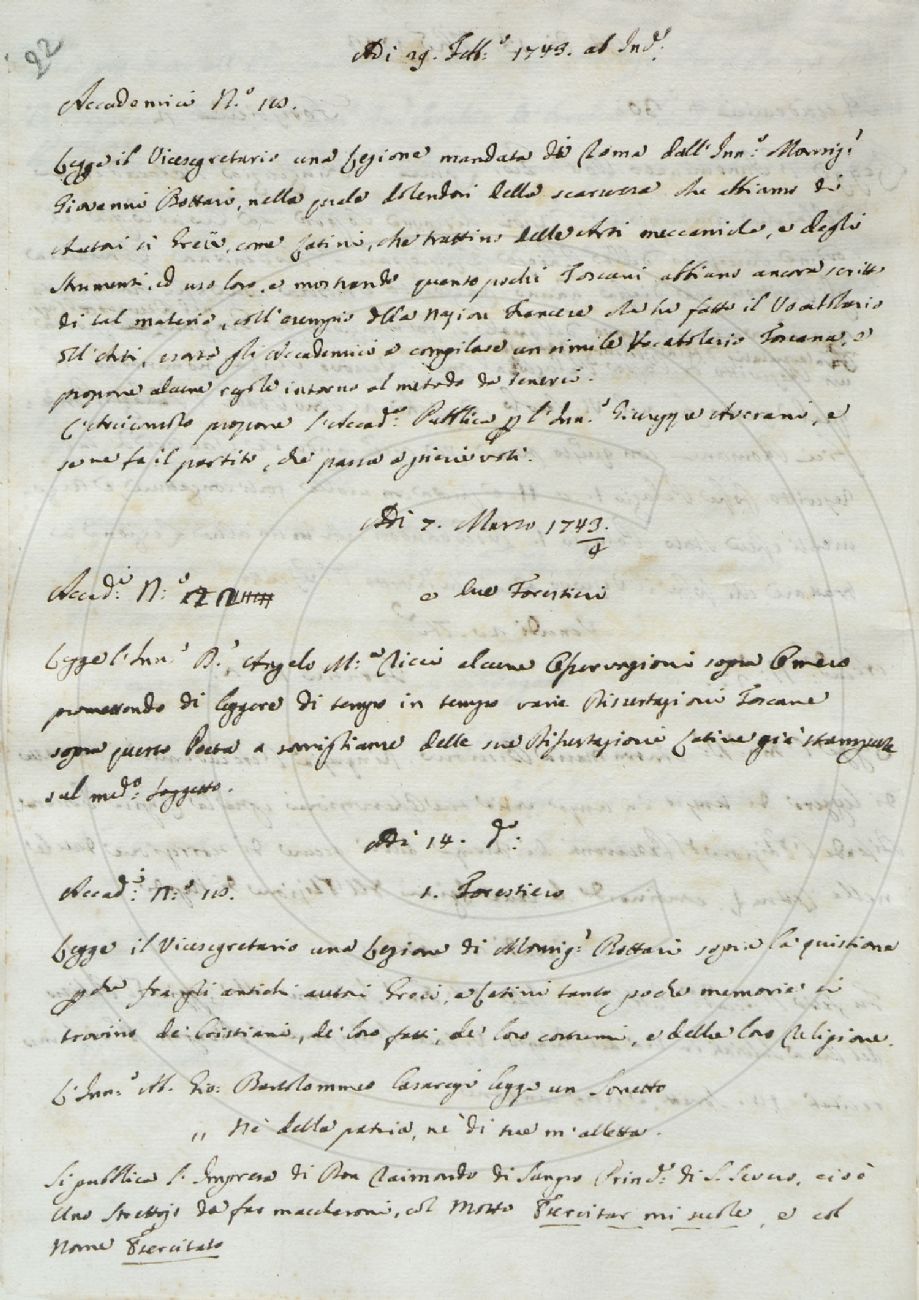 22
Adì 29. Febb.º 1743. ab Ind.e
Accademici N.º 10.
Legge il Vicesegretario una Lezione mandata di Roma dall' Inn.º Monsig.r
Giovanni Bottari, nella quale dolendosi della scarsezza che abbiamo di
Autori sì Greci, come Latini, che trattino delle Arti meccaniche, e degli
strumenti, ed uso loro, e mostrando quanto pochi Toscani abbiano ancora scritto
di tal materia, coll' esempio della Nazion Francese che ha fatto il Vocabolario
dell' Arti, esorta gli Accademici a compilare un simile Vocabolario Toscano, e
propone alcune regole intorno al metodo da tenersi.
L'Arciconsolo propone l'Accad.a Pubblica p l'Inn.º Giuseppe Averani, e
se ne fa il partito, che passa a pieni voti.
Adì 7. Marzo 1743/4
Accad.i N.º e due Forestieri
Legge l'Inn.º D.r Angelo M.a Ricci alcune Osservazioni sopra Omero
promettendo di leggere di tempo in tempo varie Dissertazioni Toscane
sopra questo Poeta a somiglianza delle sue Dissertazioni Latine già stampate
sul med.º soggetto.
Adì 14. d.º
Accad.i N.º 10. 1. Forestiero
Legge il Vicesegretario una Lezione di Monsig.r Bottari sopra la quistione
pchè fra gli antichi autori Greci, e Latini tanto poche memorie si
trovino de' Cristiani, de' loro fatti, de' loro costumi, e della loro Religione.
L'Inn.º Ab. Gio: Bartolommeo Casaregi legge un Sonetto
„ Nè della patria, nè di me m'alletta.
Si pubblica l'Impresa di Don Raimondo di Sangro Princ.e di S. Severo, cioè
Uno Strettojo da far maccheroni, col Motto Esercitar mi suole, e col
Nome Esercitato